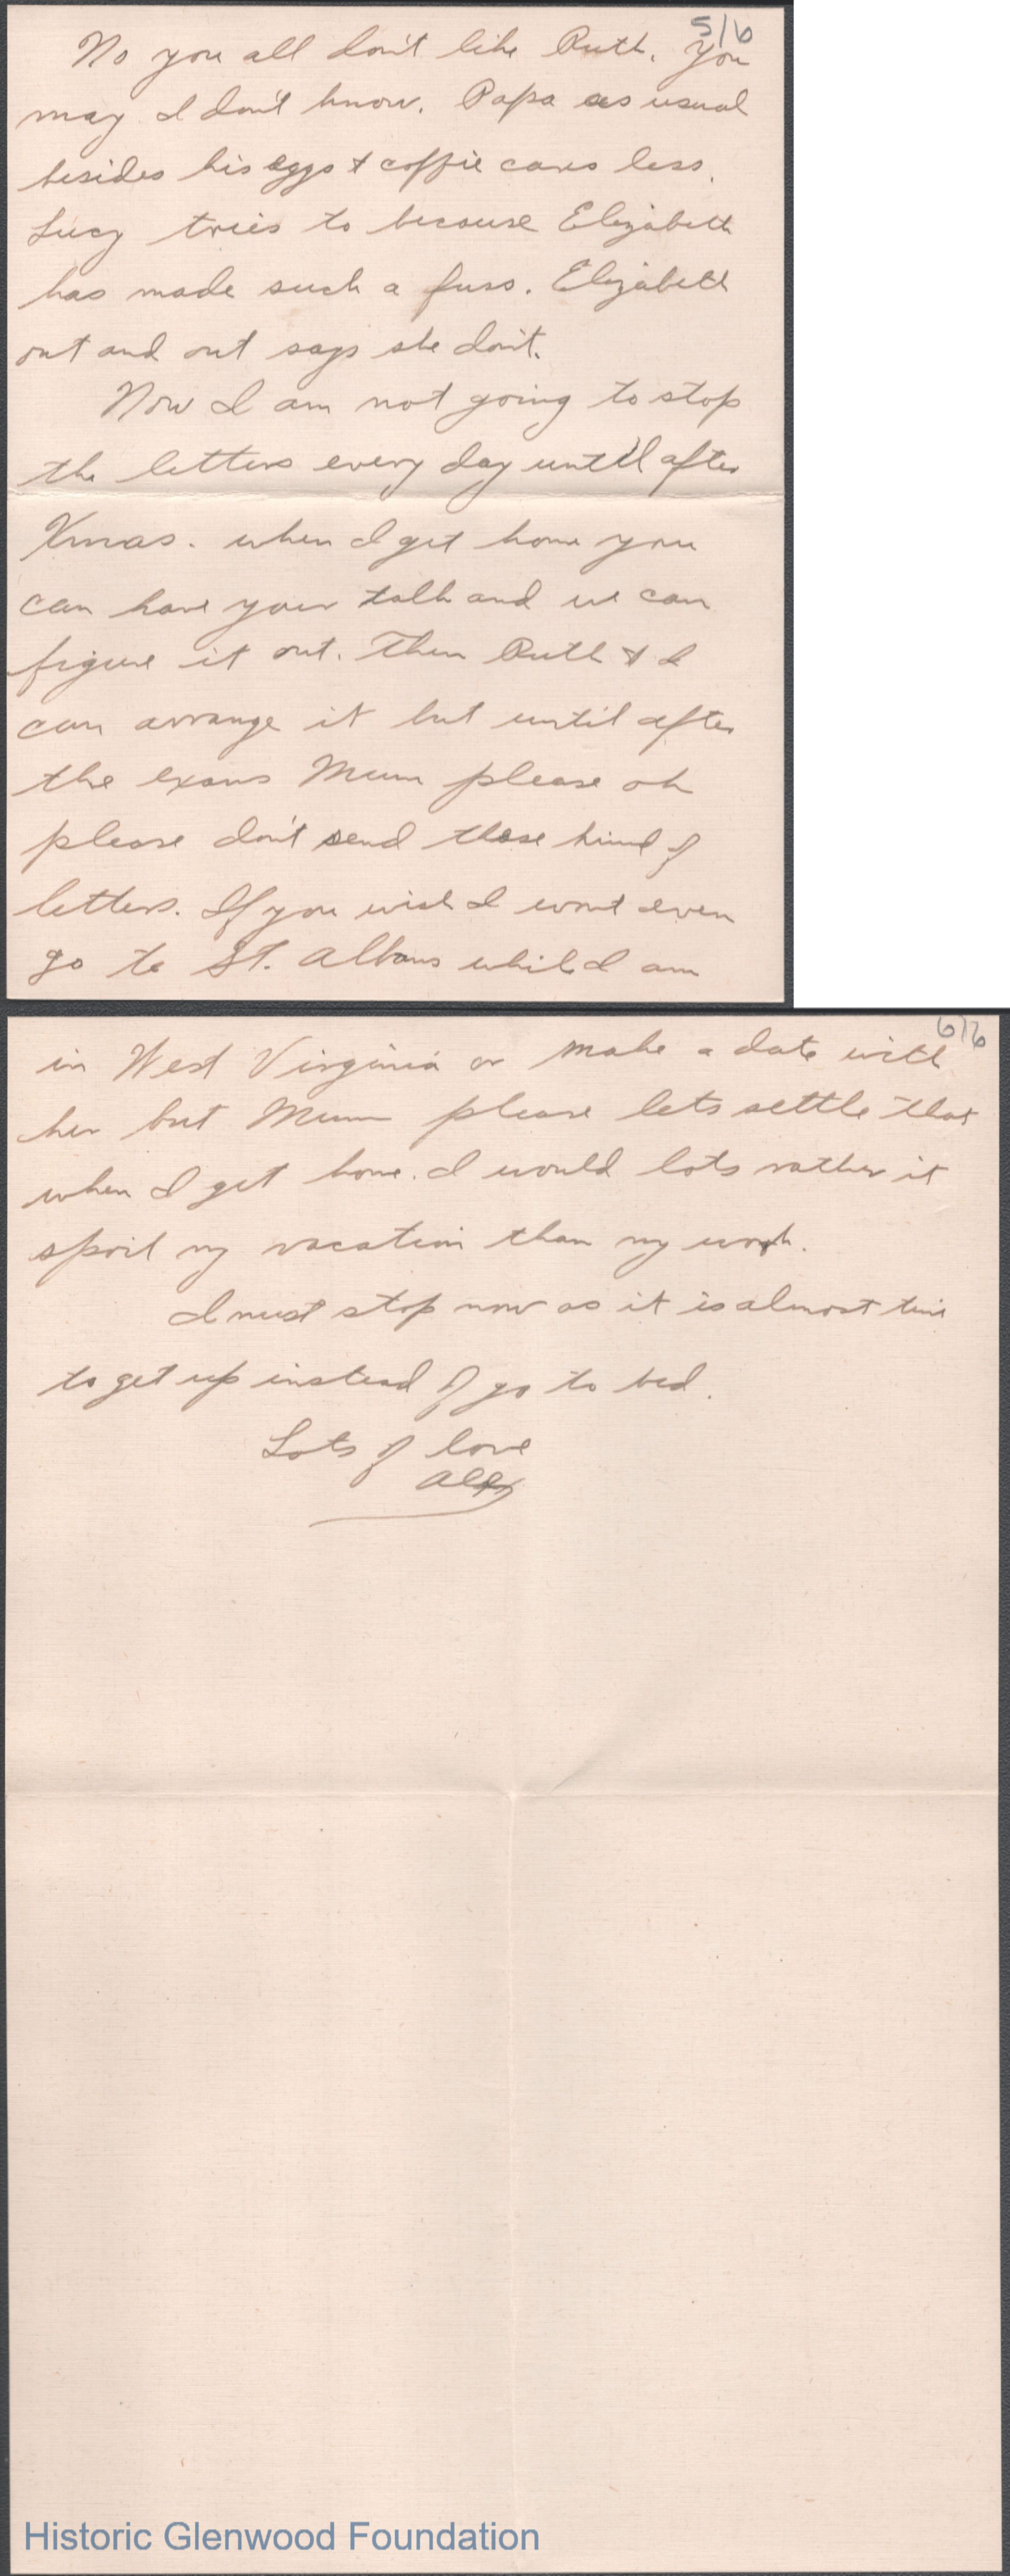 5/6
No you all don't like Ruth. You
may I don't know. Papa as usual
besides his eggs & coffie cares less.
Lucy tries to because Elizabeth
has made such a fuss. Elizabeth
out and out says she don't.
Now I am not going to stop
the letters every day until after
Xmas. when I get home you
can have your talk and we can
figure it out. Then Ruth & I
can arrange it but until after
the exams Mum please oh
please don't send those kind of
letters. If you wish I wont even
go to St. Albans while I am
6/6
in West Virginia or make a date with
her but Mum please lets settle that
when I get home. I would lots rather it
spoil my vacation than my work.
I must stop now as it is almost time
to get up instead of go to bed.
Lots of love
Alex
Historic Glenwood Foundation